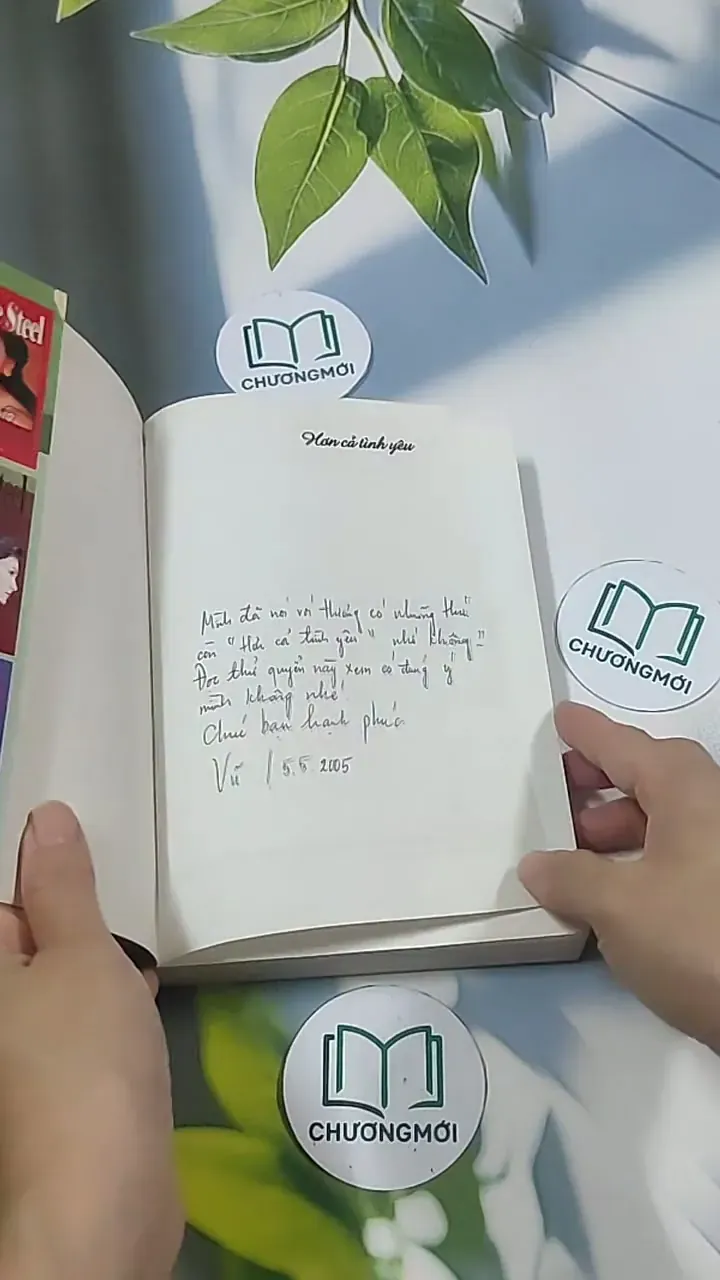 Steel
CHƯƠNGMỚI
Hơn cả tình yêu
Mình đã nói với thương có những thứ
còn "Hơn cả tình yêu" nhé không!!
Đọc thử quyển này xem có đúng ý
mình không nhé!
Chúc bạn hạnh phúc
Vũ / 5.5.2005
CHƯƠNGMỚI
CHƯƠNGMỚI